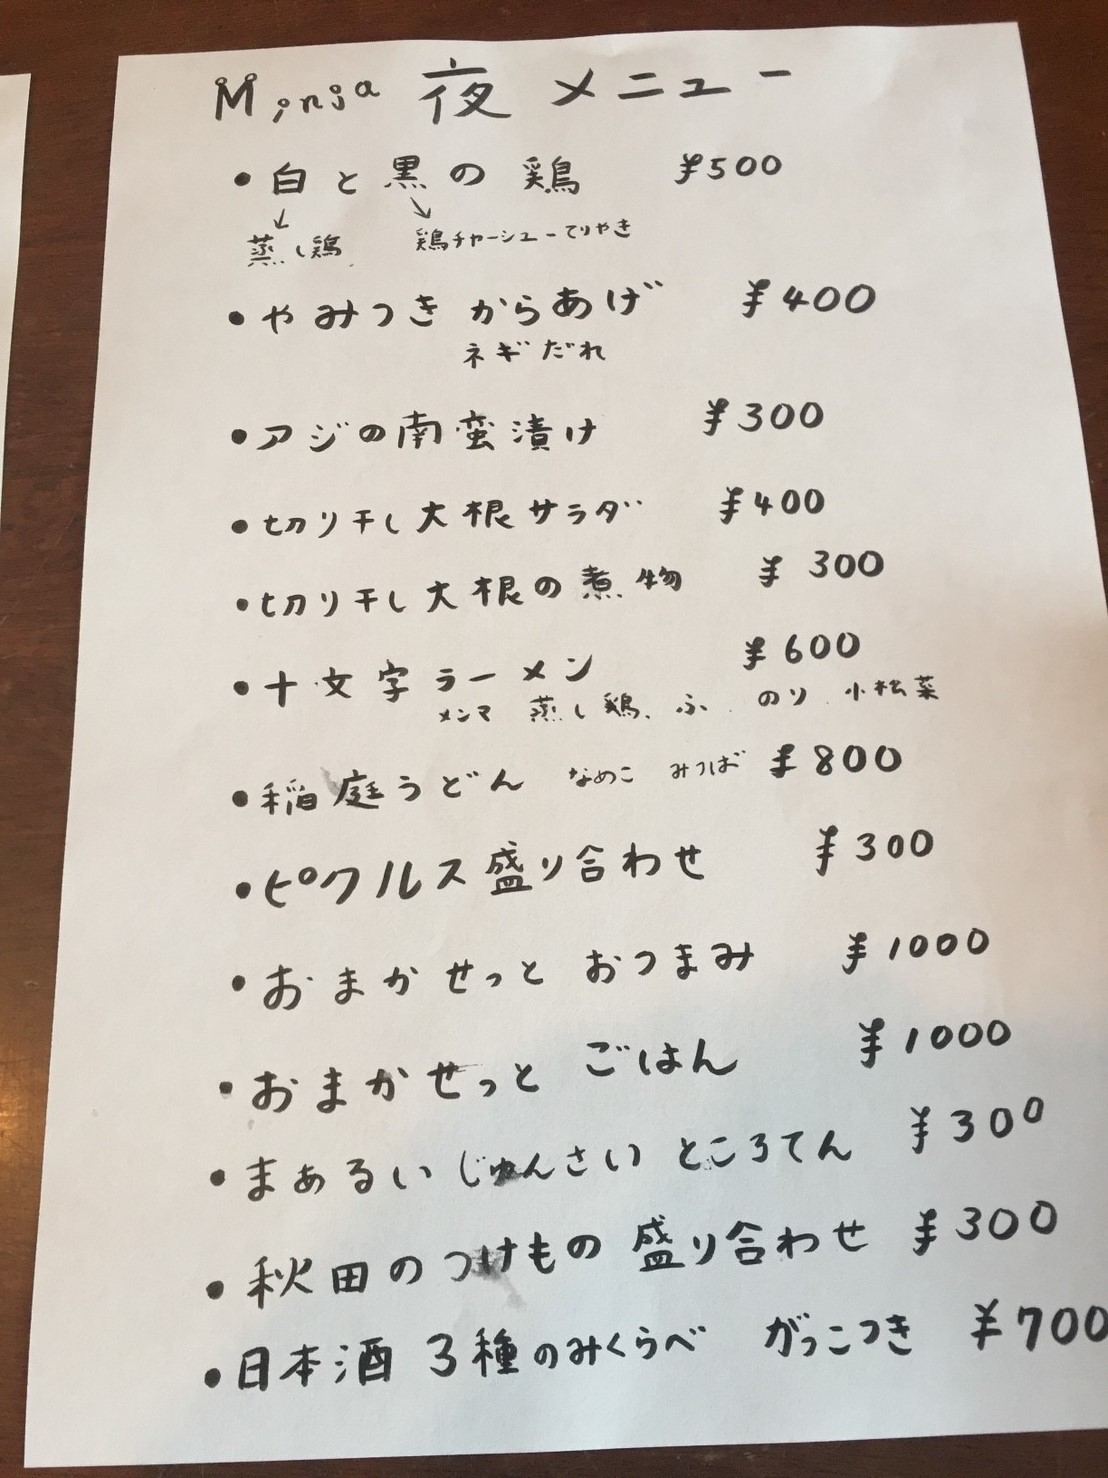 Minja 夜メニュー
・白と黒の鶏 ¥500
蒸し鶏 鶏チャーシューてりやき
・やみつきからあげ ¥400
ネギだれ
・アジの南蛮漬け ¥300
・切り干し大根サラダ ¥400
・切り干し大根の煮物 ¥300
・十文字ラーメン ¥600
メンマ 蒸し鶏、ふ、のり、小松菜
・稲庭うどん なめこ みつば ¥800
・ピクルス盛り合わせ ¥300
・おまかせっと おつまみ ¥1000
・おまかせっと ごはん ¥1000
・まぁるいじゅんさいところてん ¥300
・秋田のつけもの盛り合わせ ¥300
・日本酒3種のみくらべ がっこつき ¥700